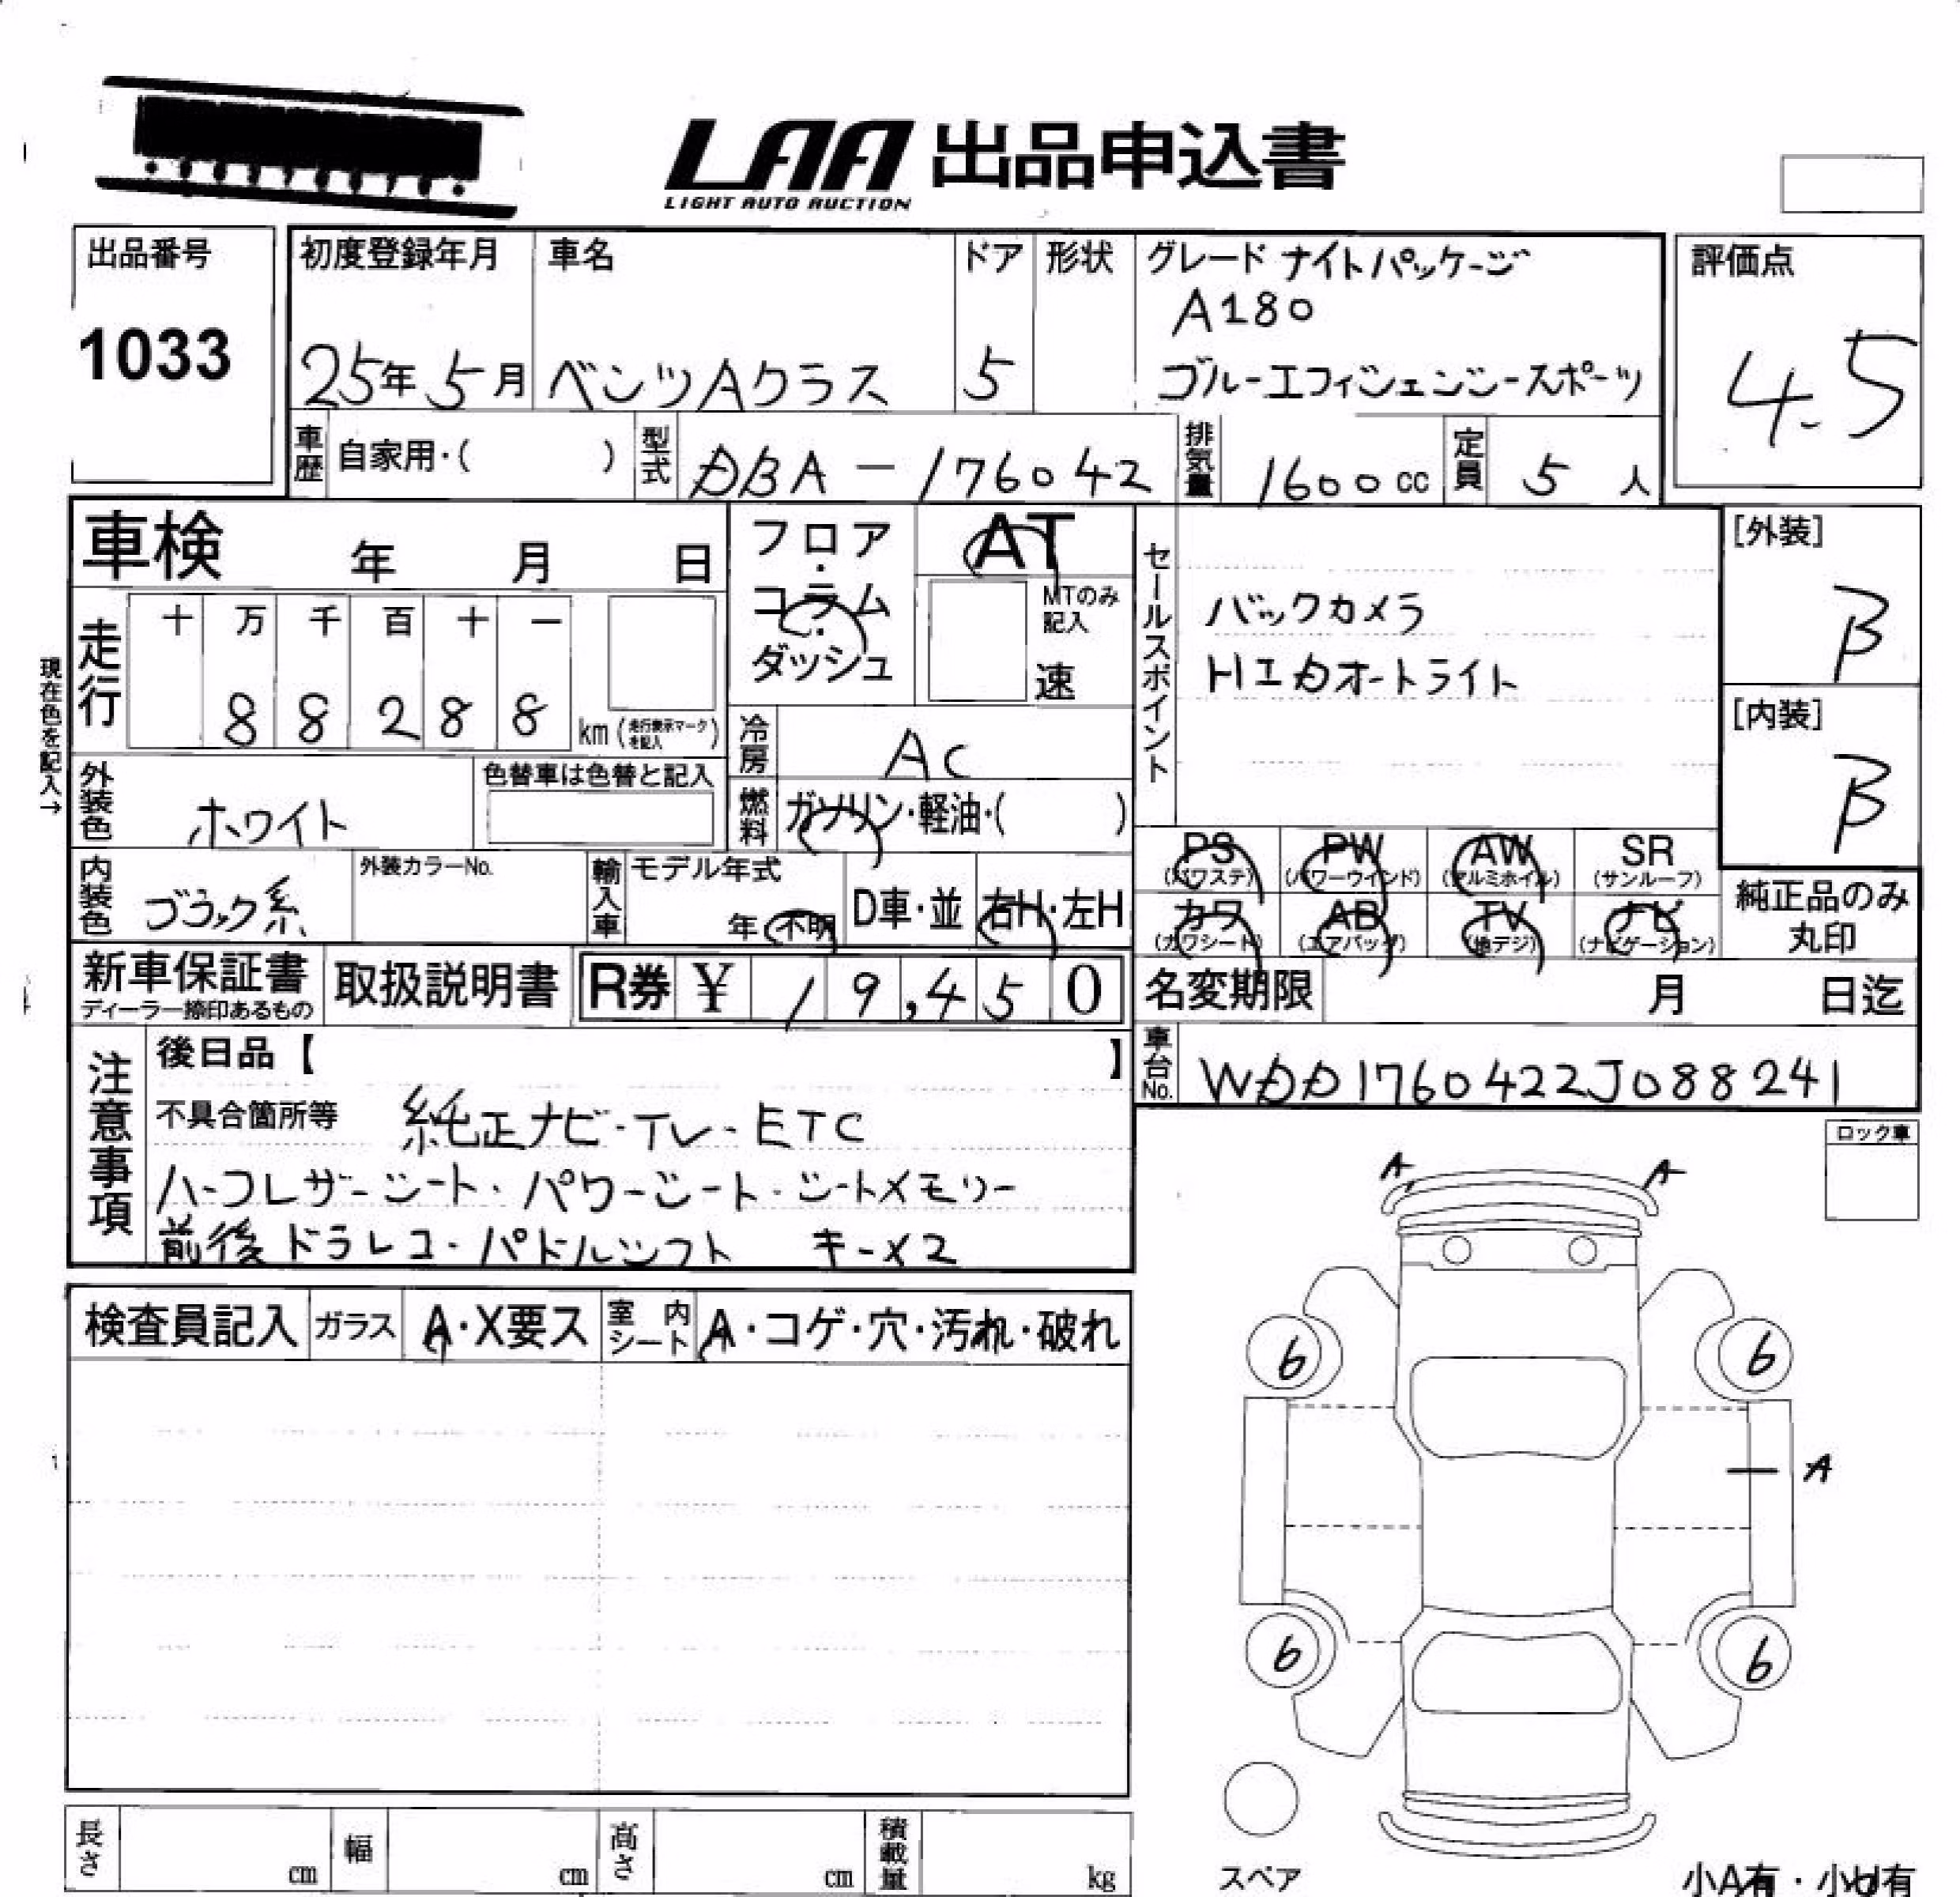 LAA 出品申込書
LIGHT AUTO AUCTION
出品番号
1033
初度登録年月
25年5月
車名
ベンツAクラス
ドア
5
形状
グレード ナイトパッケージ
A180
ブルーエフィシェンシースポーツ
評価点
4.5
車歴 自家用・( )
型式 DBA-176042
排気量 1600cc
定員 5人
車検 年 月 日
フロア・コラム・ダッシュ
AT
MTのみ記入
速
セールスポイント
バックカメラ
HIDオートライト
[外装]
B
[内装]
B
現在色を記入→
走行 十 万 千 百 十 一
8 8 2 8 8
km (走行表示マークを記入)
冷房 AC
外装色 ホワイト
色替車は色替と記入
燃料 ガソリン・軽油・( )
PS (パワステ)
PW (パワーウインド)
AW (アルミホイル)
SR (サンルーフ)
カワ (カワシート)
AB (エアバッグ)
TV (地デジ)
ナビ (ナビゲーション)
純正品のみ丸印
内装色 ブラック系
外装カラーNo.
輸入車 モデル年式 年 不明
D車・並
右H・左H
新車保証書
ディーラー捺印あるもの
取扱説明書
R券 ¥ 19,450
名変期限 月 日迄
車台No. WDD1760422J088241
注意事項
後日品【 】
不具合箇所等 純正ナビ・TV・ETC
ハーフレザーシート・パワーシート・シートメモリー
前後ドラレコ・パドルシフト キー×2
ロック車
A A
検査員記入 ガラス A・X要ス 室内シート A・コゲ・穴・汚れ・破れ
6 6
A
6 6
スペア
小A有・小U有
長さ cm 幅 cm 高さ cm 積載量 kg